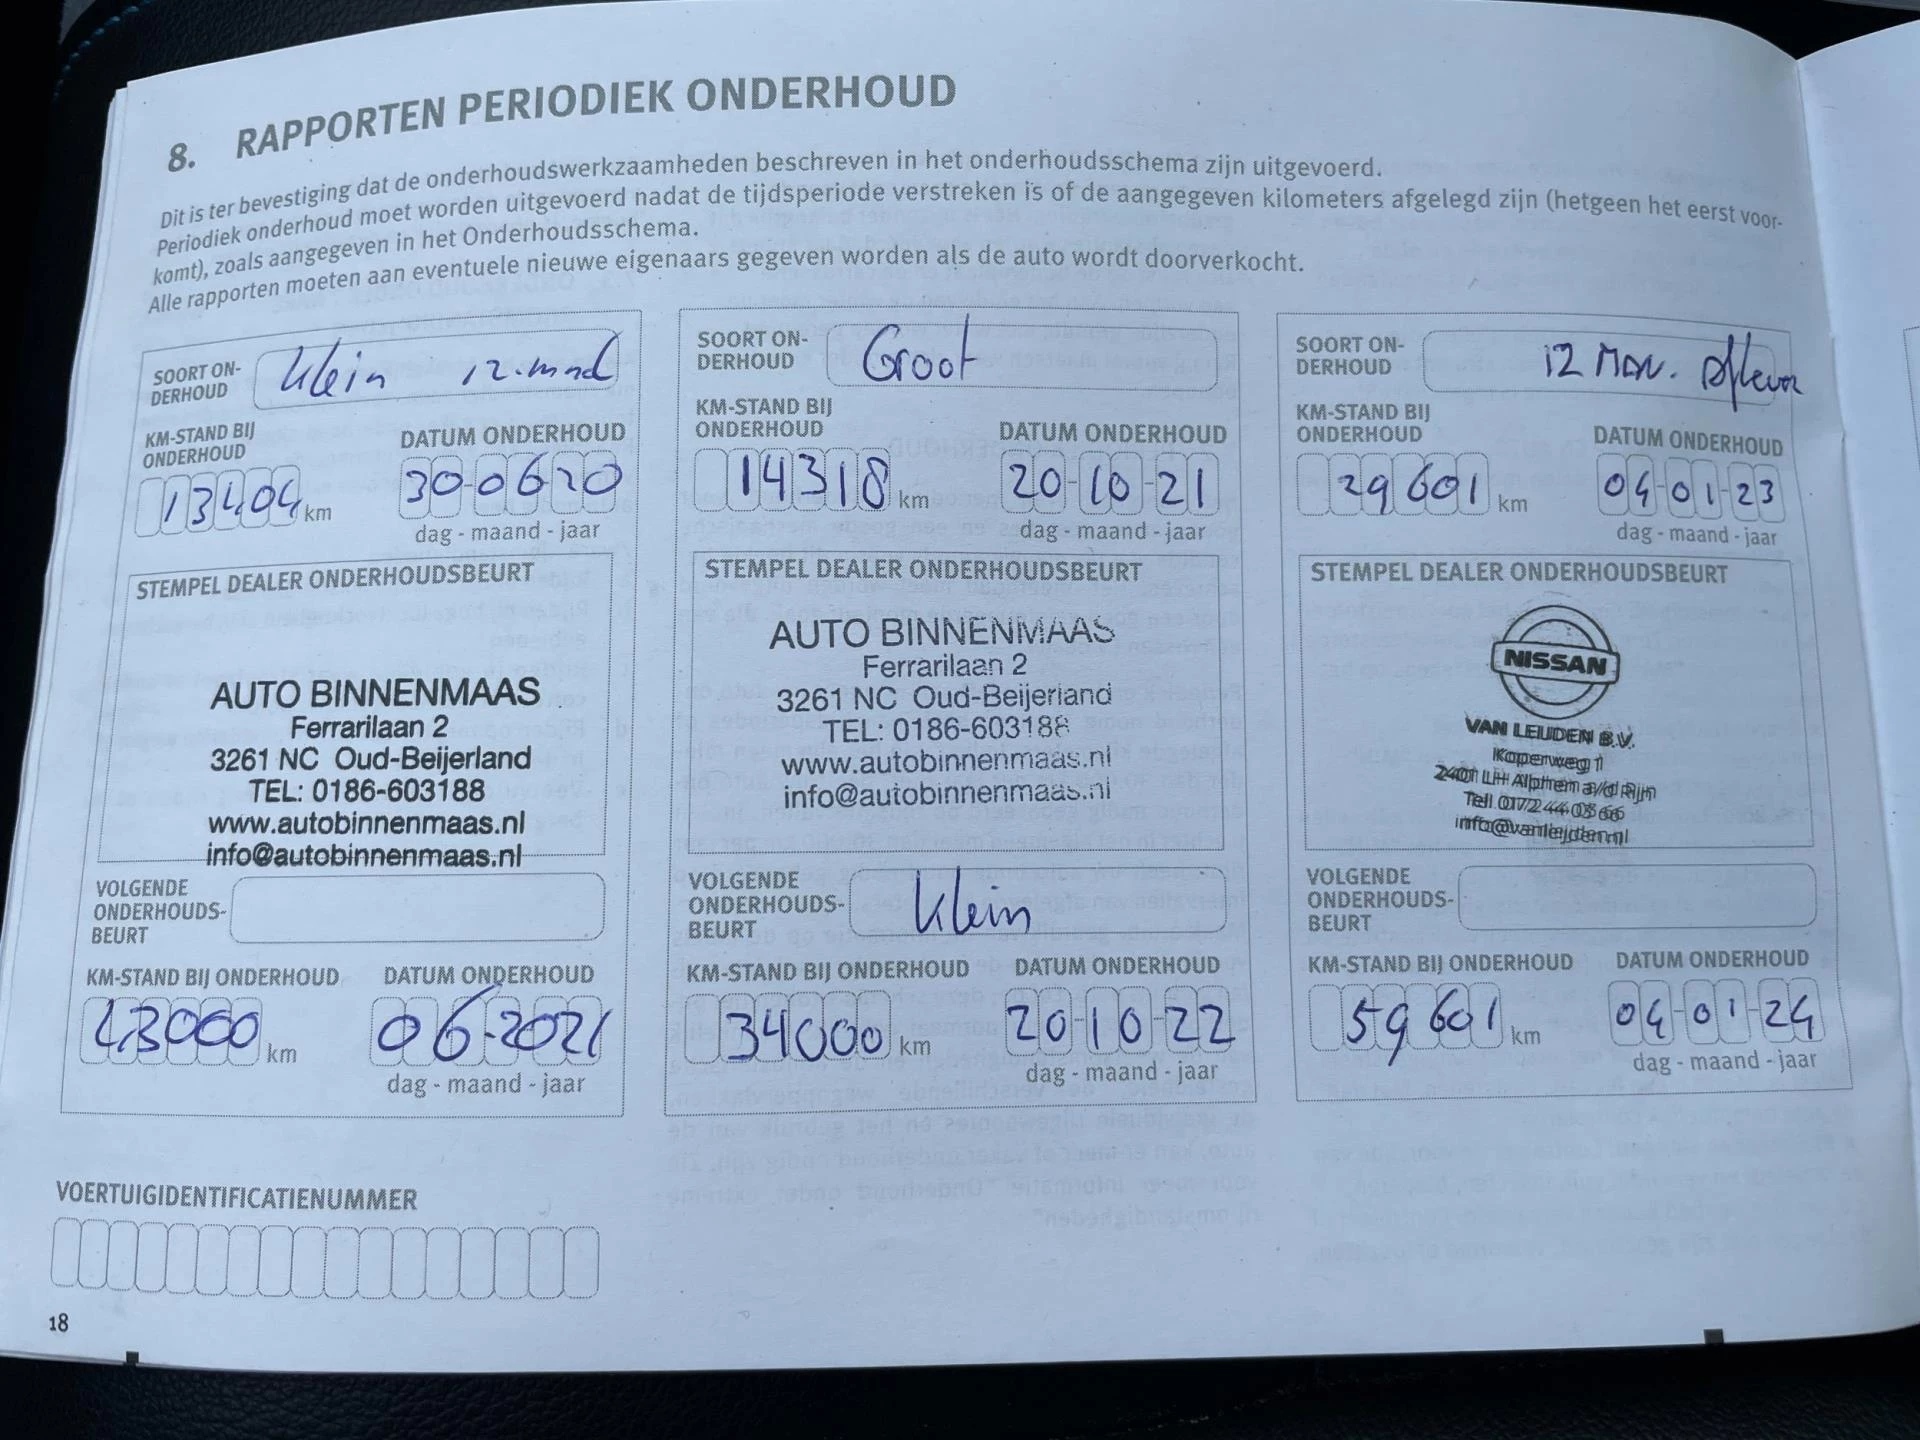 8. RAPPORTEN PERIODIEK ONDERHOUD
Dit is ter bevestiging dat de onderhoudswerkzaamheden beschreven in het onderhoudsschema zijn uitgevoerd.
Periodiek onderhoud moet worden uitgevoerd nadat de tijdsperiode verstreken is of de aangegeven kilometers afgelegd zijn (hetgeen het eerst voor-
komt), zoals aangegeven in het Onderhoudsschema.
Alle rapporten moeten aan eventuele nieuwe eigenaars gegeven worden als de auto wordt doorverkocht.
SOORT ON-
DERHOUD
Klein 12.mnd
KM-STAND BIJ
ONDERHOUD
13404 km
DATUM ONDERHOUD
30-06-20
dag - maand - jaar
STEMPEL DEALER ONDERHOUDSBEURT
AUTO BINNENMAAS
Ferrarilaan 2
3261 NC Oud-Beijerland
TEL: 0186-603188
www.autobinnenmaas.nl
info@autobinnenmaas.nl
VOLGENDE
ONDERHOUDS-
BEURT
KM-STAND BIJ ONDERHOUD
43000 km
DATUM ONDERHOUD
06-2021
dag - maand - jaar
SOORT ON-
DERHOUD
Groot
KM-STAND BIJ
ONDERHOUD
14318 km
DATUM ONDERHOUD
20-10-21
dag - maand - jaar
STEMPEL DEALER ONDERHOUDSBEURT
AUTO BINNENMAAS
Ferrarilaan 2
3261 NC Oud-Beijerland
TEL: 0186-603188
www.autobinnenmaas.nl
info@autobinnenmaas.nl
VOLGENDE
ONDERHOUDS-
BEURT
Klein
KM-STAND BIJ ONDERHOUD
34000 km
DATUM ONDERHOUD
20-10-22
dag - maand - jaar
SOORT ON-
DERHOUD
12 Man.
KM-STAND BIJ
ONDERHOUD
29601 km
DATUM ONDERHOUD
04-01-23
dag - maand - jaar
STEMPEL DEALER ONDERHOUDSBEURT
NISSAN
VAN LEIJDEN B.V.
Koperweg 1
2401 LH Alphen a/d Rijn
Tel. 0172 44 03 66
info@vanleijden.nl
VOLGENDE
ONDERHOUDS-
BEURT
KM-STAND BIJ ONDERHOUD
59601 km
DATUM ONDERHOUD
04-01-24
dag - maand - jaar
VOERTUIGIDENTIFICATIENUMMER
18